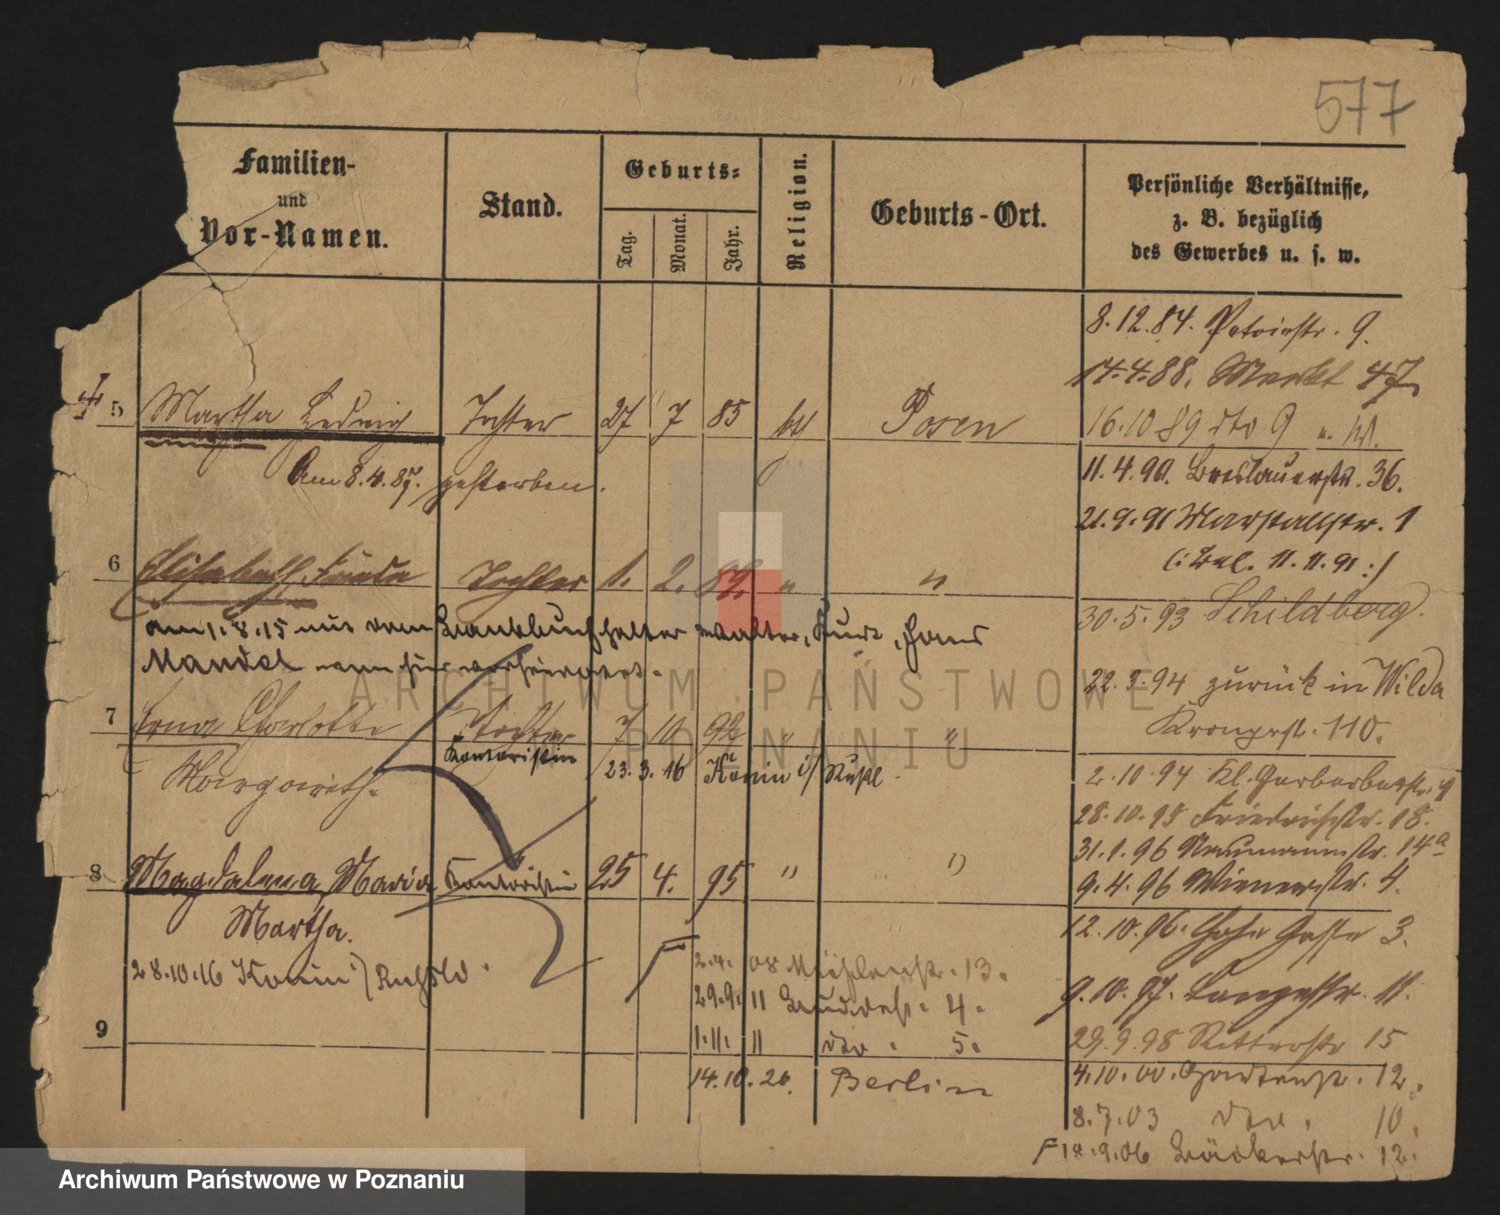 577
Familien-
und
Vor-Namen.
Stand.
Geburts-
Tag.
Monat.
Jahr.
Religion.
Geburts-Ort.
Persönliche Verhältnisse,
z. B. bezüglich
des Gewerbes u. s. w.
8.12.84. Petristr. 9.
17.4.88. Markt 47
5 Martha Hedwig Tochter 27 7 85 Posen
16.10 89 dto 9
Am 8.4.87. gestorben.
11.4.90. Breslauerstr. 36.
21.9.91 Marstallstr. 1
11.11.91:)
6 Elisabeth Frieda Tochter 1. 2. 87. " "
30.5.93 Schildberg.
am 1.8.15 mit dem Bankbuchhalter Walter, Kurt, Hans
Mandel verheiratet.
22.3.94 zurück in Wilda
Kronprstr. 110.
7 Erna Charlotte Tochter 7 10 92 " "
Kontoristin
Margarethe
23.3.16 Konin i/ Rußl.
2.10.94 Kl. Gerberstr. 9
28.10.95 Friedrichstr. 18.
31.1.96 Naumannstr. 14a
8 Magdalena, Maria Kontoristin 25 4. 95 " "
9.4.96 Wienerstr. 4.
Martha.
12.10.96. Hohe Gasse 3.
28.10.16 Konin i/ Rußld.
2.4.08 Mühlenstr. 13.
9.10.97. Langestr. 11.
29.9.11 4.
1.11.11 dto. 5.
29.9.98 Ritterstr 15
9
14.10.20. Berlin
4.10.00. Gartenstr. 12.
8.7.03 dto. 10.
18.9.06 Bäckerstr. 12.
ARCHIWUM PAŃSTWOWE
POZNANIU
Archiwum Państwowe w Poznaniu